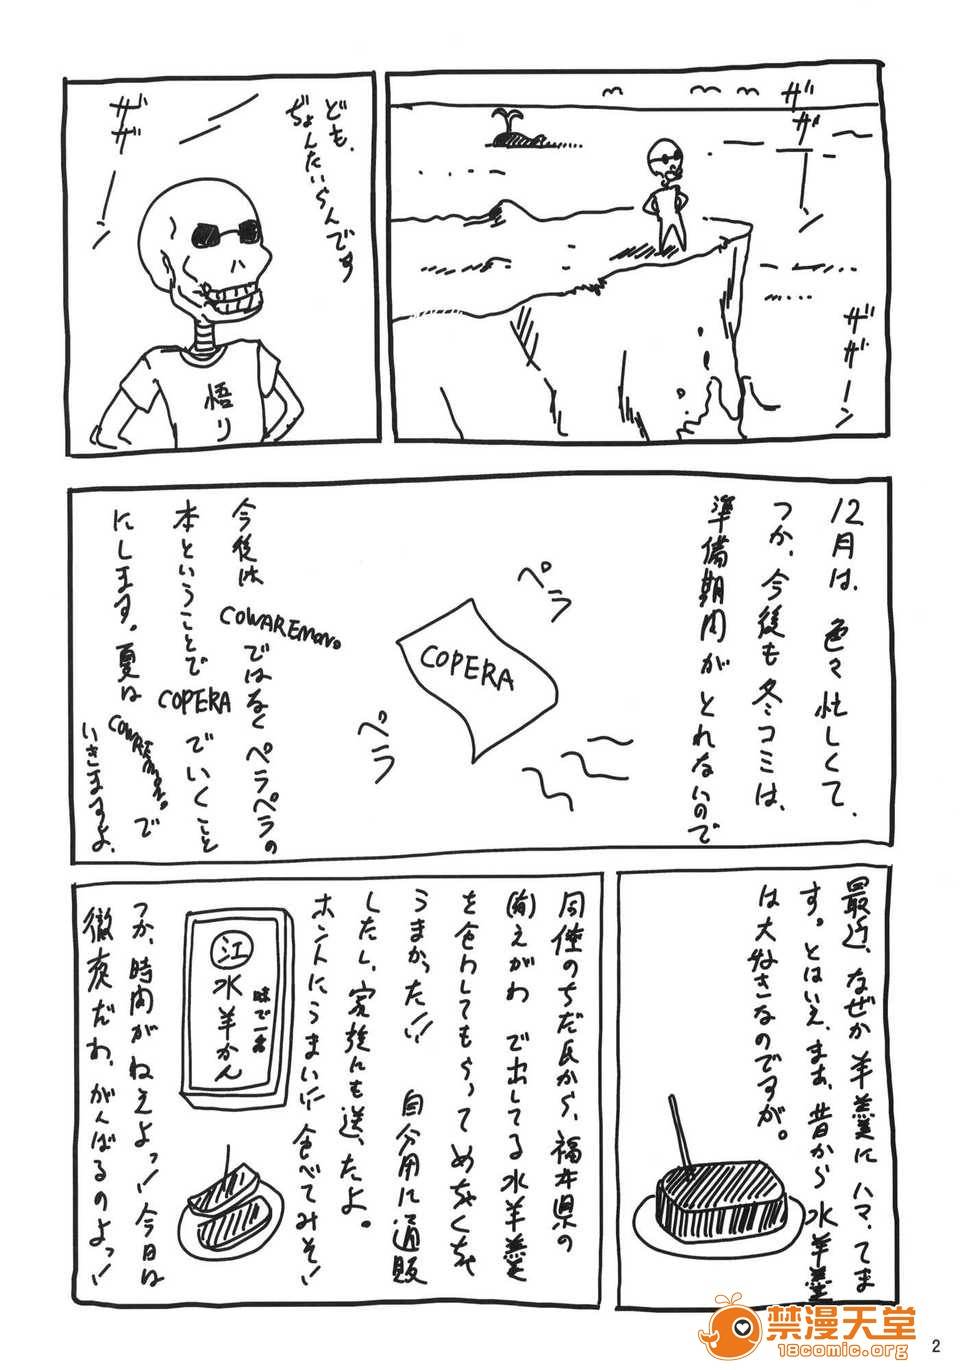 ザザーン
ザザーン
ども、
ぢょんたいらんです
ザザーン
悟り
12月は、色々忙しくて、
つか、今後も冬コミは、
準備期間がとれないので
ペラ
COPERA
ペラ
今後は
COWAREMONO。
ではなくペラペラの
本ということで
COPERA
でいくこと
にします。夏は
COWAREMONO。で
いきますよ、
最近、なぜか羊羹にハマってま
す。とはいえ、まぁ、昔から水羊羹
は大好きなのですが。
同僚のちだ氏から、福井県の
(有)えがわで出してる水羊羹
を食わしてもらってめちゃくちゃ
うまかった!!自分用に通販
したし、家族にも送ったよ。
ホントにうまい!!食べてみそ!
江
味で一番
水羊かん
つか、時間がねぇよっ!!今日は
徹夜だわ、がんばるのよっ!
禁漫天堂
18comic.org
2